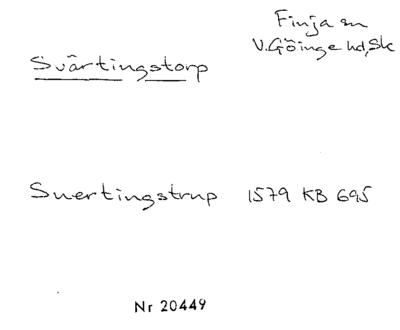 Finja sn
V. Göinge hd, Sk
Svärtingstorp
Suertingstrup 1579 KB 695
Nr 20449